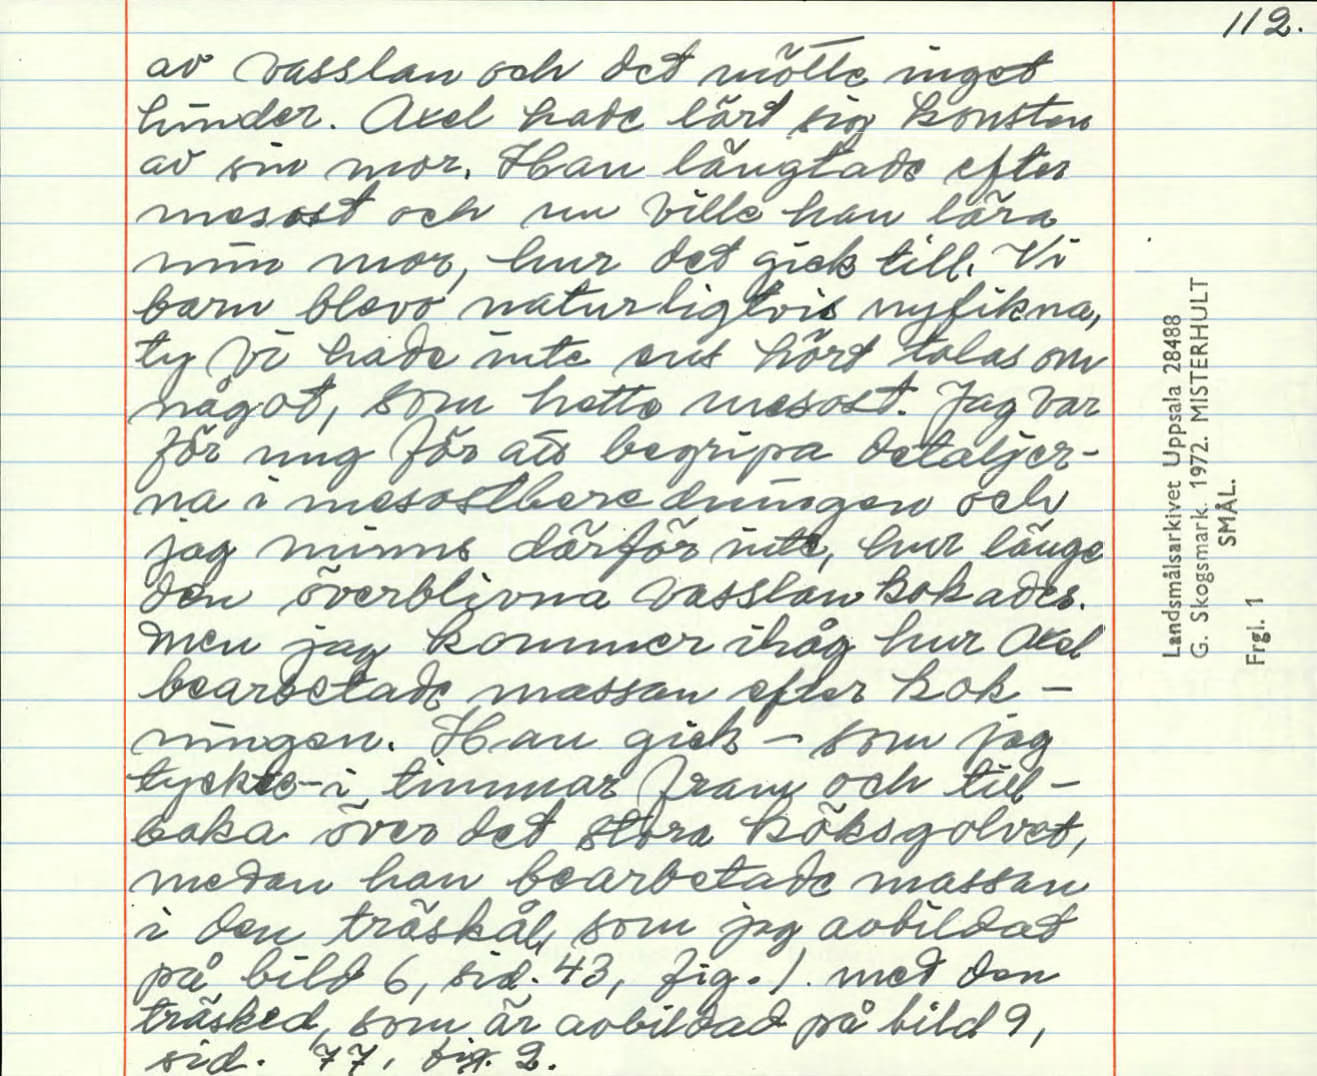 112.
av vasslan och det mötte inget
hinder. Axel hade lärt sig konsten
av sin mor. Han längtade efter
mesost och nu ville han lära
min mor, hur det gick till. Vi
barn blevo naturligtvis nyfikna,
ty vi hade inte ens hört talas om
något, som hette mesost. Jag var
för ung för att begripa detaljer-
na i mesostberedningen och
jag minns därför inte, hur länge
den överblivna vasslan kokades.
Men jag kommer ihåg hur Axel
bearbetade massan efter kok-
ningen. Han gick - som jag
tyckte - i timmar fram och till-
baka över det stora köksgolvet,
medan han bearbetade massan
i den träskål, som jag avbildat
på bild 6, sid. 43, fig. 1. med den
träsked, som är avbildad på bild 9,
sid. 77, fig. 2.
Landsmålsarkivet Uppsala 28488
G. Skogsmark. 1972. MISTERHULT
SMÅL.
Frgl. 1